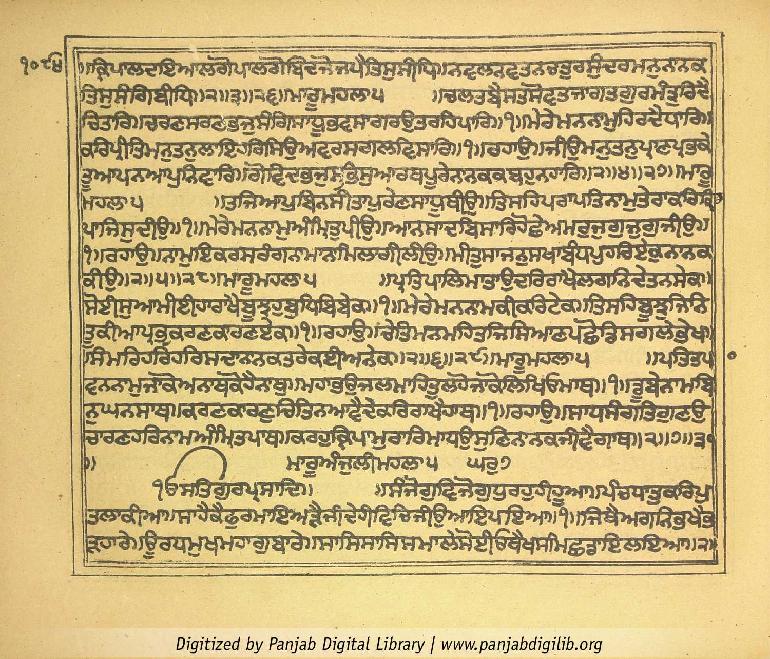 ॥ਕ੍ਰਿਪਾਲਦਇਆਲਗੋਪਾਲਗੋਬਿੰਦਜੋਜਪੈਤਿਸੁਸੀਧਿ॥ਨਵਲਨਵਤਨਚਤੁਰਸੁੰਦਰਮਨੁਨਾਨਕ
ਤਿਸੁਸੰਗਿਬੀਧਿ॥੨॥੩॥੨੬॥ਮਾਰੂਮਹਲਾ੫ ॥ਚਲਤਬੈਸਤਸੋਵਤਜਾਗਤਗੁਰਮੰਤੁਰਿਦੈ
ਚਿਤਾਰਿ॥ਚਰਣਸਰਣਭਜੁਸੰਗਿਸਾਧੂਭਵਸਾਗਰਉਤਰਹਿਪਾਰਿ॥੧॥ਮੇਰੇਮਨਨਾਮੁਹਿਰਦੈਧਾਰਿ॥
ਕਰਿਪ੍ਰੀਤਿਮਨੁਤਨੁਲਾਇਹਰਿਸਿਉਅਵਰਸਗਲਵਿਸਾਰਿ॥੧॥ਰਹਾਉ॥ਜੀਉਮਨੁਤਨੁਪ੍ਰਾਣਪ੍ਰਭਕੇ
ਤੂਆਪਨਆਪੁਨਿਵਾਰਿ॥ਗੋਵਿਦਭਜੁਸਭਿਸੁਆਰਥਪੂਰੇਨਾਨਕਕਬਹੁਨਹਾਰਿ॥੨॥੪॥੨੭॥ਮਾਰੂ
ਮਹਲਾ੫ ॥ਤਜਿਆਪੁਬਿਨਸੀਤਾਪੁਰੇਣਸਾਧੂਥੀਉ॥ਤਿਸਹਿਪਰਾਪਤਿਨਾਮੁਤੇਰਾਕਰਿਕ੍ਰਿ
ਪਾਜਿਸੁਦੀਉ॥੧॥ਮੇਰੇਮਨਨਾਮੁਅੰਮ੍ਰਿਤੁਪੀਉ॥ਆਨਸਾਦਬਿਸਾਰਿਹੋਛੇਅਮਰੁਜੁਗੁਜੁਗੁਜੀਉ॥
੧॥ਰਹਾਉ॥ਨਾਮੁਇਕਰਸਰੰਗਨਾਮਾਨਾਮਿਲਾਗੀਲੀਉ॥ਮੀਤੁਸਾਜਨੁਸਖਾਬੰਧਪੁਹਰਿਏਕੁਨਾਨਕ
ਕੀਉ॥੨॥੫॥੨੮॥ਮਾਰੂਮਹਲਾ੫ ॥ਪ੍ਰਤਿਪਾਲਿਮਾਤਾਉਦਰਿਰਾਖੈਲਗਨਿਦੇਤਨਸੇਕ॥
ਸੋਈਸੁਆਮੀਈਹਾਰਾਖੈਬੂਝੁਬੁਧਿਬਿਬੇਕ॥੧॥ਮੇਰੇਮਨਨਾਮਕੀਕਰਿਟੇਕ॥ਤਿਸਹਿਬੂਝੁਜਿਨਿ
ਤੂਕੀਆਪ੍ਰਭੁਕਰਣਕਾਰਣਏਕ॥੧॥ਰਹਾਉ॥ਚੇਤਿਮਨਮਹਿਤਜਿਸਿਆਣਪਛੋਡਿਸਗਲੇਭੇਖ॥
ਸਿਮਰਿਹਰਿਹਰਿਸਦਾਨਾਨਕਤਰੇਕਈਅਨੇਕ॥੨॥੬॥੨੯॥ਮਾਰੂਮਹਲਾ੫ ॥ਪਤਿਤਪਾ
ਵਨਨਾਮੁਜਾਕੋਅਨਾਥਕੋਹੈਨਾਥੁ॥ਮਹਾਭਉਜਲਮਾਹਿਤੁਲਹੋਜਾਕੋਲਿਖਿਓਮਾਥ॥੧॥ਡੂਬੇਨਾਮਬਿ
ਨੁਘਨਸਾਥ॥ਕਰਣਕਾਰਣੁਚਿਤਿਨਆਵੈਦੇਕਰਿਰਾਖੈਹਾਥ॥੧॥ਰਹਾਉ॥ਸਾਧਸੰਗਤਿਗੁਣਉ
ਚਾਰਣਹਰਿਨਾਮਅੰਮ੍ਰਿਤਪਾਥ॥ਕਰਹੁਕ੍ਰਿਪਾਮੁਰਾਰਿਮਾਧਉਸੁਣਿਨਾਨਕਜੀਵੈਗਾਥ॥੨॥੭॥੩੦
॥ ਮਾਰੂਅੰਜੁਲੀਮਹਲਾ੫ ਘਰੁ੭
ੴਸਤਿਗੁਰਪ੍ਰਸਾਦਿ॥ ॥ਸੰਜੋਗੁਵਿਜੋਗੁਧੁਰਹੁਹੀਹੂਆ॥ਪੰਚਧਾਤੁਕਰਿਪੁ
ਤਲਾਕੀਆ॥ਸਾਹੈਕੈਫੁਰਮਾਇਅੜੈਜੀਦੇਹੀਵਿਚਿਜੀਉਆਇਪਇਆ॥੧॥ਜਿਥੈਅਗਨਿਭਖੈਭ
ੜਹਾਰੇ॥ਊਰਧਮੁਖਮਹਾਗੁਬਾਰੇ॥ਸਾਸਿਸਾਸਿਸਮਾਲੇਸੋਈਓਥੈਖਸਮਿਛਡਾਇਲਇਆ॥੨॥
Digitized by Panjab Digital Library | www.panjabdigilib.org